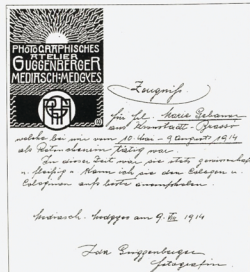 PHOTOGRAPHISCHES
ATELIER
GUGGENBERGER
MEDIASCH-MEDGYES
Zeugniß.
für Frl. Marie Gebauer
aus Kronstadt-Brasso
welche bei mir vom 10. Mai - 9 Augusts 1914
als Retoucheurin tätig war.
In dieser Zeit war sie stets gewissenhaft
u. fleißig - kann ich sie den Collegen u.
Coleginen aufs beste anempfehlen.
Mediasch-Medgyes am 9. VIII 1914
Ida Guggenberger
Fotografin.